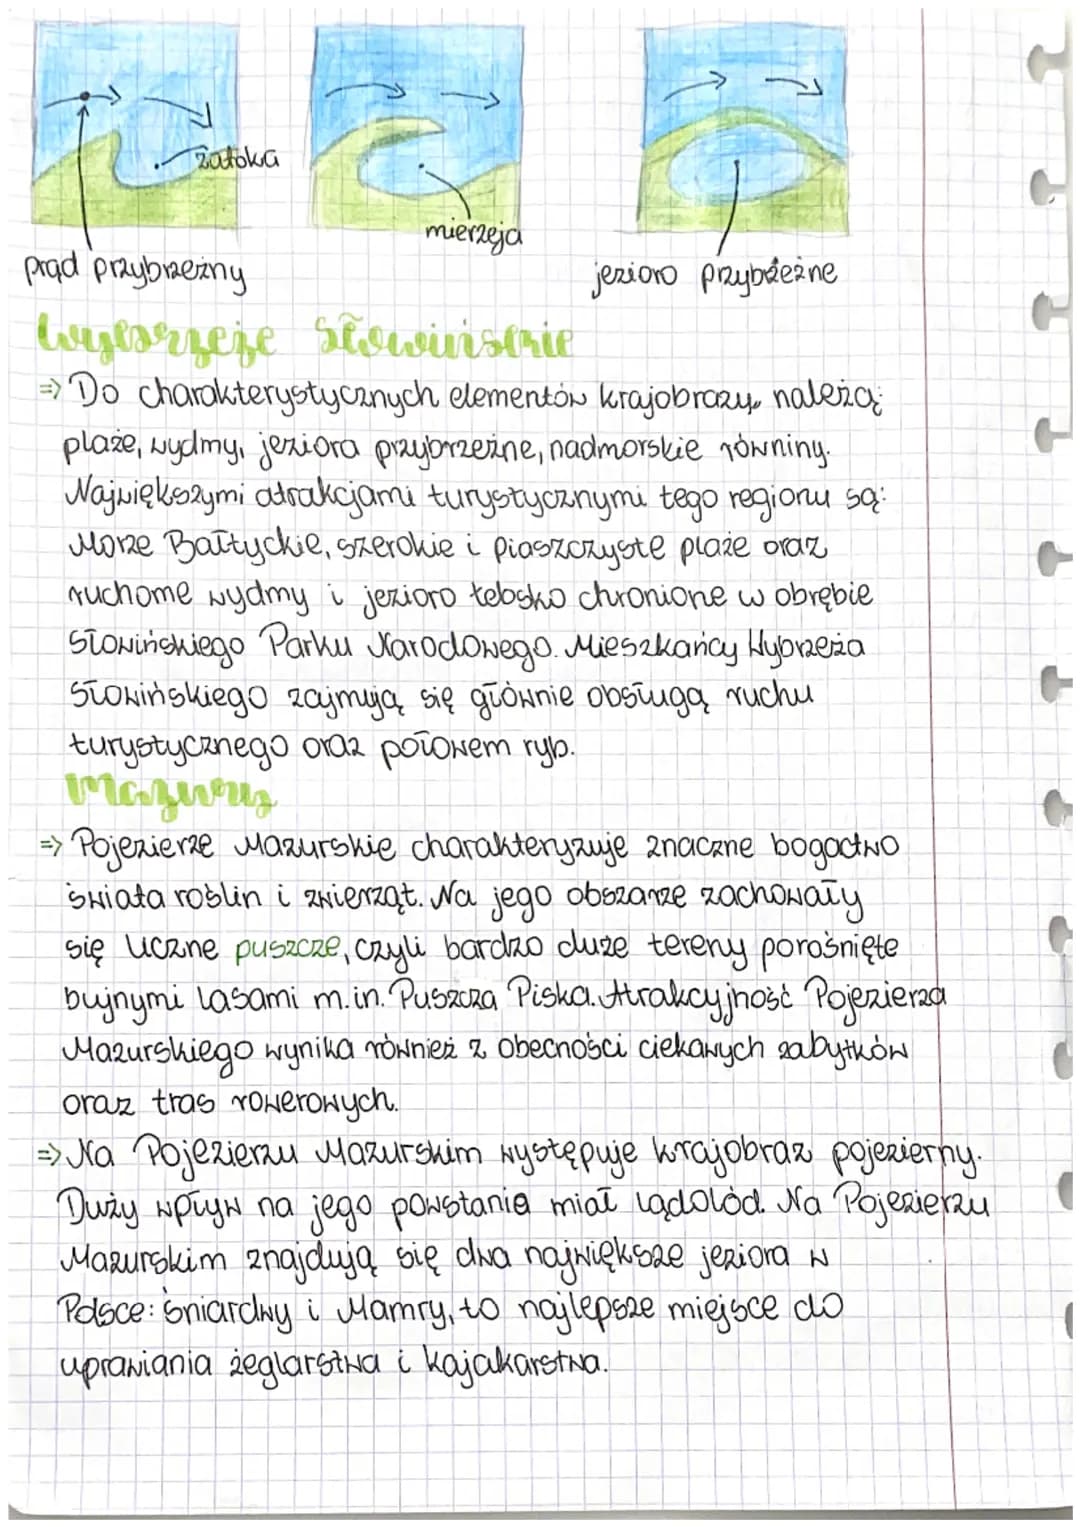 zatoka
mierzeja
prąd przybrzeżny
jezioro przybrzeżne
Wybrzeże Słowińskie
=> Do charakterystycznych elementów krajobrazu należą:
plaże, wydmy, jeziora przybrzeżne, nadmorskie równiny.
Największymi atrakcjami turystycznymi tego regionu są:
Morze Bałtyckie, szerokie i piaszczyste plaże oraz
ruchome wydmy i jezioro Łebsko chronione w obrębie
Słowińskiego Parku Narodowego. Mieszkańcy Wybrzeża
Słowińskiego zajmują się głównie obsługą ruchu
turystycznego oraz połowem ryb.
Mazury
=> Pojezierze Mazurskie charakteryzuje znaczne bogactwo
świata roślin i zwierząt. Na jego obszarze zachowały
się liczne puszcze, czyli bardzo duże tereny porośnięte
bujnymi lasami m.in. Puszcza Piska. Atrakcyjność Pojezierza
Mazurskiego wynika również z obecności ciekawych zabytków
oraz tras rowerowych.
=> Na Pojezierzu Mazurskim występuje krajobraz pojezierny.
Duży wpływ na jego powstania miał lądolód. Na Pojezierzu
Mazurskim znajdują się dwa największe jeziora w
Polsce: Śniardwy i Mamry, to najlepsze miejsce do
uprawiania żeglarstwa i kajakarstwa.